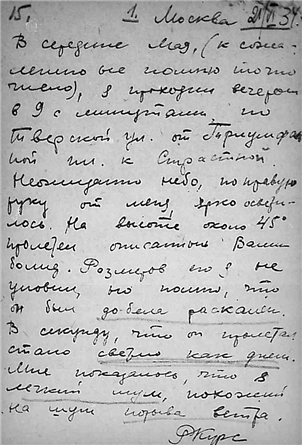 15. 1. Москва 21/VI 34.
В середине мая, (к сожа-
лению не помню точно
число), я проходил вечером
в 9 с минутами, по
Тверской ул. от Триумфаль
ной пл. к Страстной.
Неожиданно небо, по правую
руку от меня, ярко освети-
лось. На высоте около 45°
пролетел описанный Вами
болид. Размеров его я не
уловил, но помню, что
он был до-бела раскален.
В секунду, что он пролетал
стало светло как днем.
Мне показалось, что я
легкий шум, похожий
на шум порыва ветра.